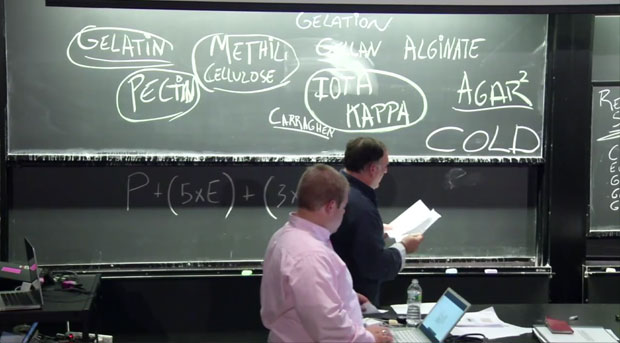 GELATION
GELATIN
METHIL
CELLULOSE
GELLAN
ALGINATE
PECTIN
IOTA
KAPPA
CARRAGHEN
AGAR²
COLD
P+(5xE)+(3x
P